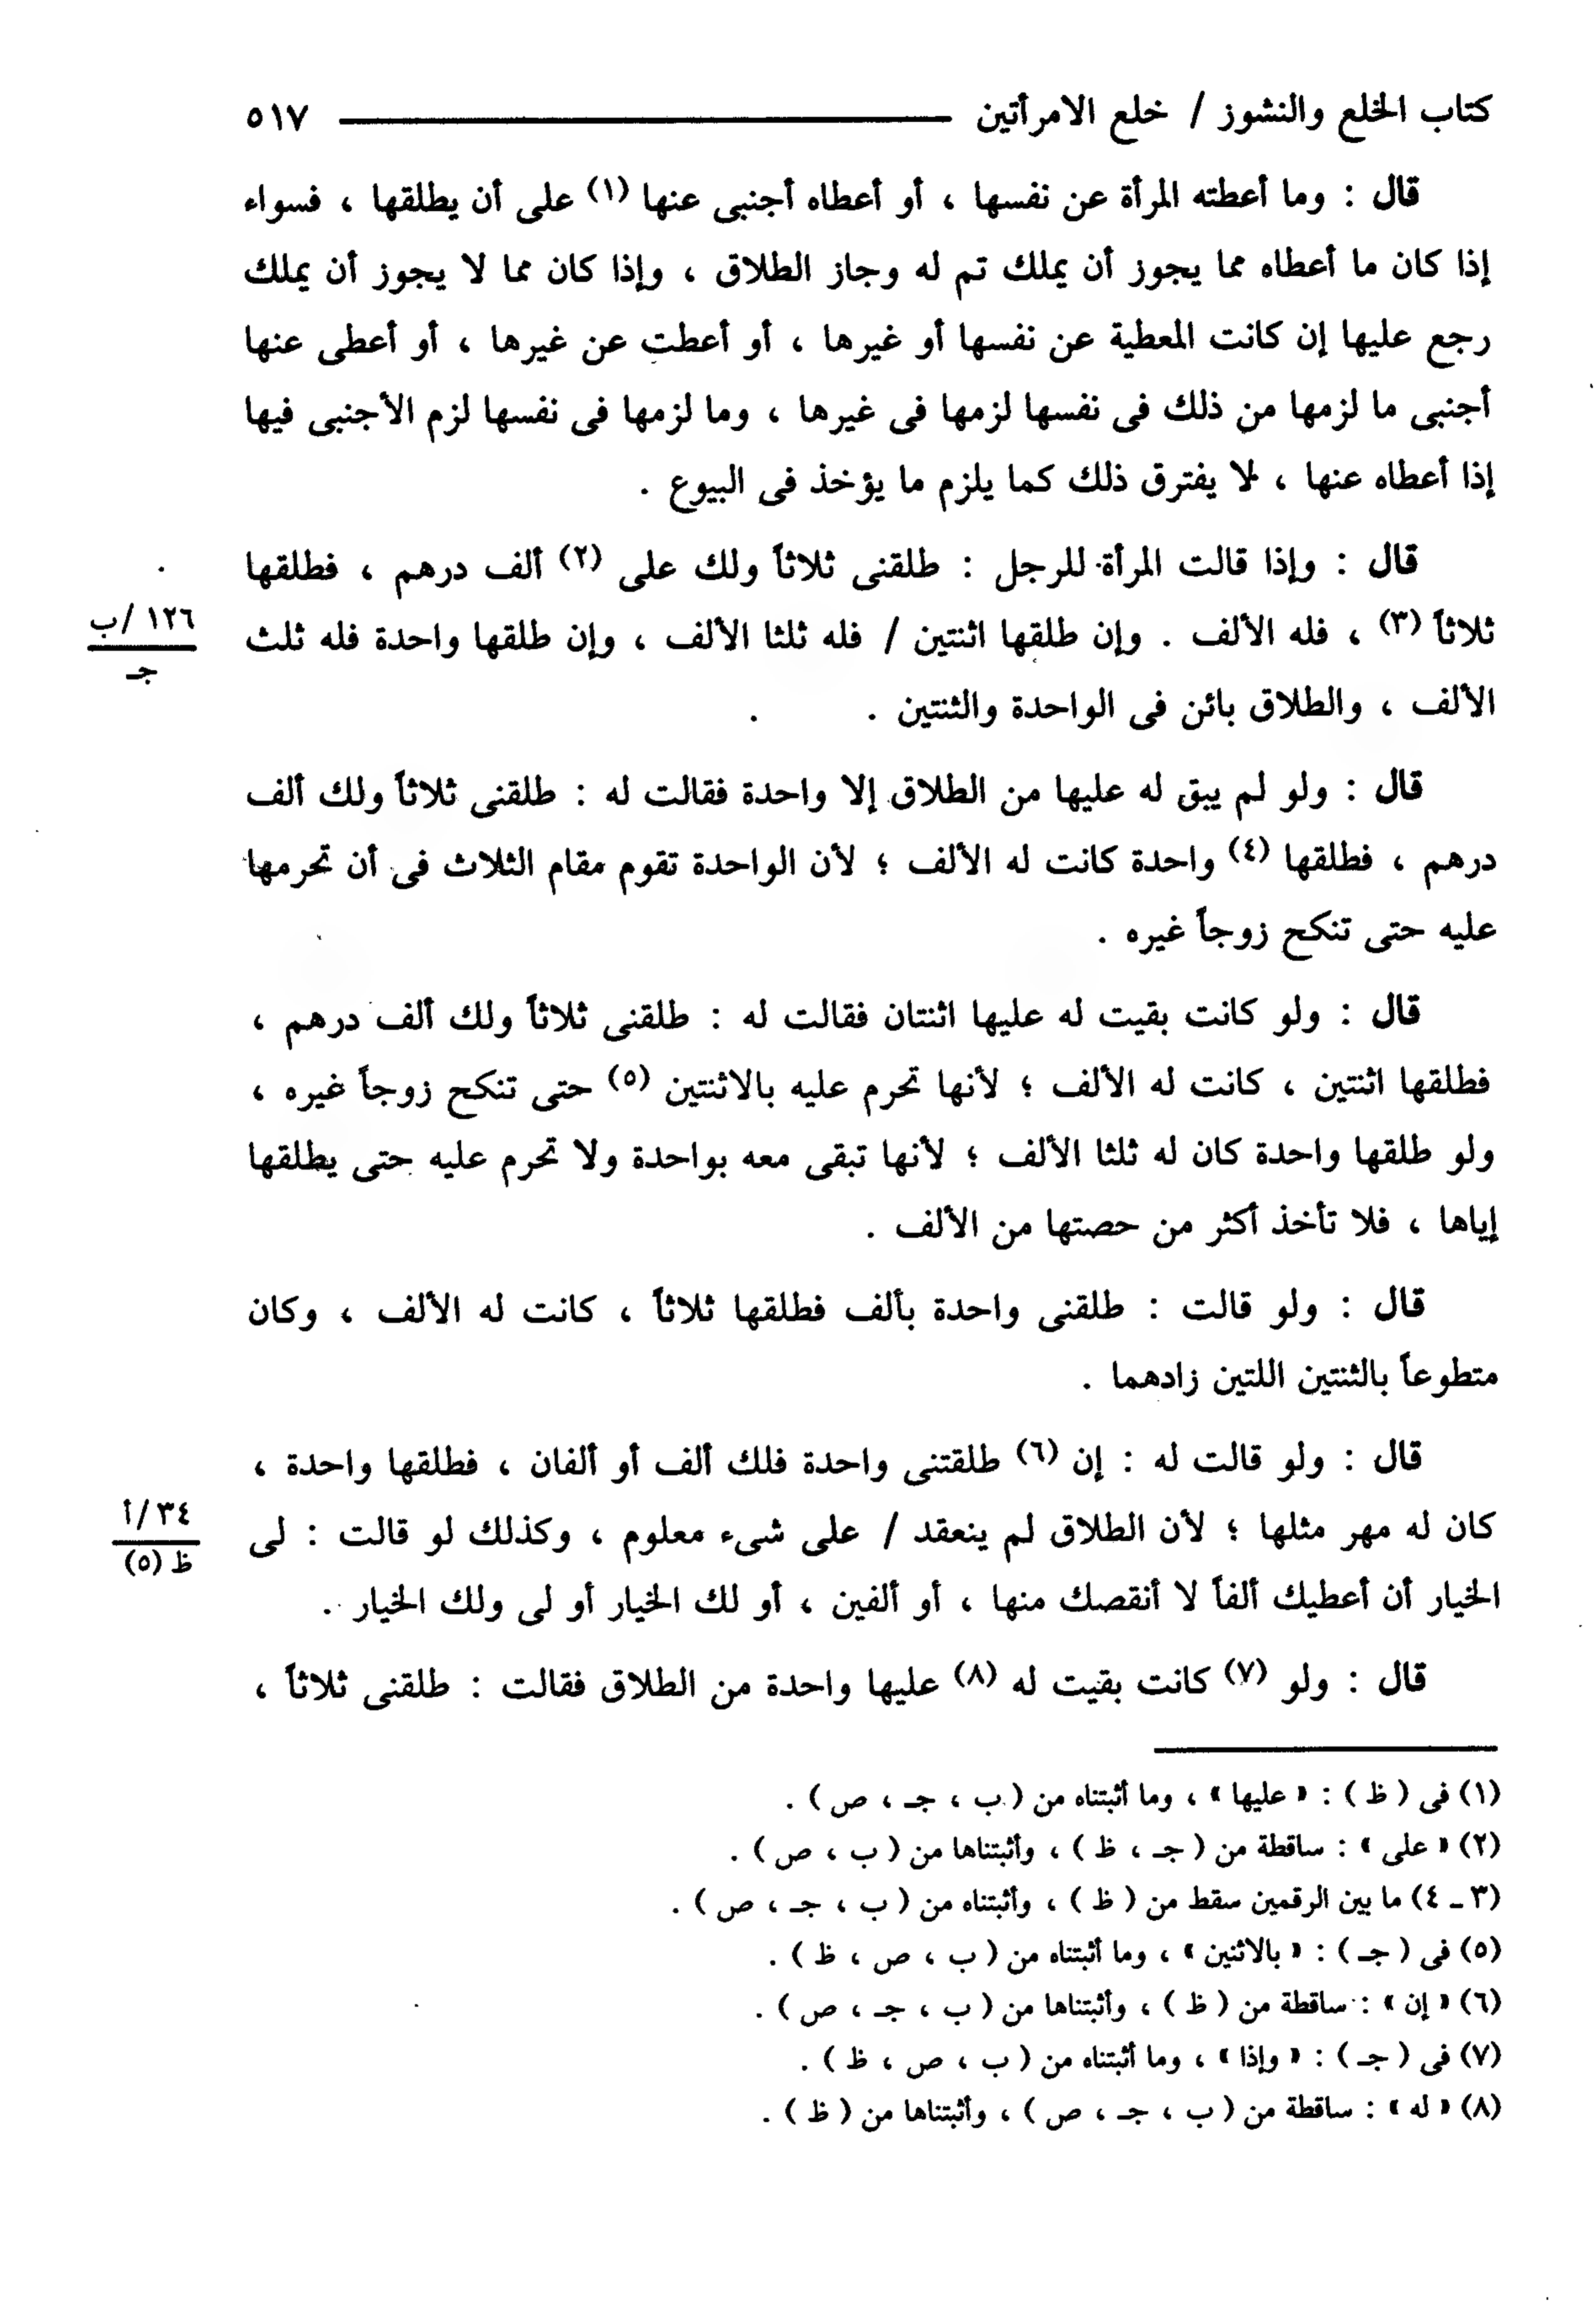 كتاب الخلع والنشوز / خلع الامرأتين ٥١٧
قال : وما أعطته المرأة عن نفسها ، أو أعطاه أجنبى عنها (١) على أن يطلقها ، فسواء
إذا كان ما أعطاه مما يجوز أن يملك تم له وجاز الطلاق ، وإذا كان مما لا يجوز أن يملك
رجع عليها إن كانت المعطية عن نفسها أو غيرها ، أو أعطت عن غيرها ، أو أعطى عنها
أجنبى ما لزمها من ذلك فى نفسها لزمها فى غيرها ، وما لزمها فى نفسها لزم الأجنبى فيها
إذا أعطاه عنها ، لا يفترق ذلك كما يلزم ما يؤخذ فى البيوع .
قال : وإذا قالت المرأة للرجل : طلقنى ثلاثاً ولك على (٢) ألف درهم ، فطلقها
ثلاثاً (٣) ، فله الألف . وإن طلقها اثنتين / فله ثلثا الألف ، وإن طلقها واحدة فله ثلث
١٢٦ /ب
جـ
الألف ، والطلاق بائن فى الواحدة والثنتين .
قال : ولو لم يبق له عليها من الطلاق إلا واحدة فقالت له : طلقنى ثلاثاً ولك ألف
درهم ، فطلقها (٤) واحدة كانت له الألف ؛ لأن الواحدة تقوم مقام الثلاث فى أن تحرمها
عليه حتى تنكح زوجاً غيره .
قال : ولو كانت بقيت له عليها اثنتان فقالت له : طلقنى ثلاثاً ولك ألف درهم ،
فطلقها اثنتين ، كانت له الألف ؛ لأنها تحرم عليه بالاثنتين (٥) حتى تنكح زوجاً غيره ،
ولو طلقها واحدة كان له ثلثا الألف ؛ لأنها تبقى معه بواحدة ولا تحرم عليه حتى يطلقها
إياها ، فلا تأخذ أكثر من حصتها من الألف .
قال : ولو قالت : طلقنى واحدة بألف فطلقها ثلاثاً ، كانت له الألف ، وكان
متطوعاً بالثنتين اللتين زادهما .
قال : ولو قالت له : إن (٦) طلقتنى واحدة فلك ألف أو ألفان ، فطلقها واحدة ،
كان له مهر مثلها ؛ لأن الطلاق لم ينعقد / على شىء معلوم ، وكذلك لو قالت : لى
٣٤ /أ
ظ (٥)
الخيار أن أعطيك ألفاً لا أنقصك منها ، أو ألفين ، أو لك الخيار أو لى ولك الخيار .
قال : ولو (٧) كانت بقيت له (٨) عليها واحدة من الطلاق فقالت : طلقنى ثلاثاً ،
(١) فى ( ظ ) : « عليها » ، وما أثبتناه من ( ب ، جـ ، ص ) .
(٢) « على » : ساقطة من ( جـ ، ظ ) ، وأثبتناها من ( ب ، ص ) .
(٣ ـ ٤) ما بين الرقمين سقط من ( ظ ) ، وأثبتناه من ( ب ، جـ ، ص ) .
(٥) فى ( جـ ) : « بالاثنين » ، وما أثبتناه من ( ب ، ص ، ظ ) .
(٦) « إن » : ساقطة من ( ظ ) ، وأثبتناها من ( ب ، جـ ، ص ) .
(٧) فى ( جـ ) : « وإذا » ، وما أثبتناه من ( ب ، ص ، ظ ) .
(٨) « له » : ساقطة من ( ب ، جـ ، ص ) ، وأثبتناها من ( ظ ) .